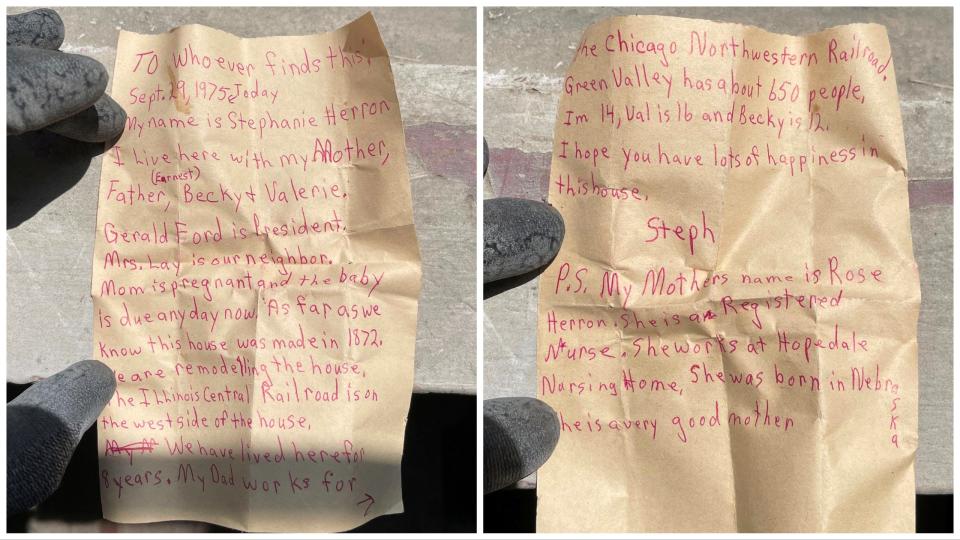 To Whoever finds this,
Sept. 29, 1975, Today
My name is Stephanie Herron
I Live here with my Mother,
(Earnest)
Father, Becky & Valerie.
Gerald Ford is President.
Mrs. Lay is our neighbor.
Mom is pregnant and the baby
is due any day now. As far as we
know this house was made in 1872.
We are remodelling the house.
The Illinois Central Railroad is on
the west side of the house,
We have lived here for
8 years. My Dad works for →
The Chicago Northwestern Railroad.
Green Valley has about 650 people,
Im 14, Val is 16 and Becky is 12.
I hope you have lots of happiness in
this house.
Steph
P.S. My Mothers name is Rose
Herron. She is a Registered
Nurse. She works at Hopedale
Nursing Home, She was born in Nebraska
She is a very good mother